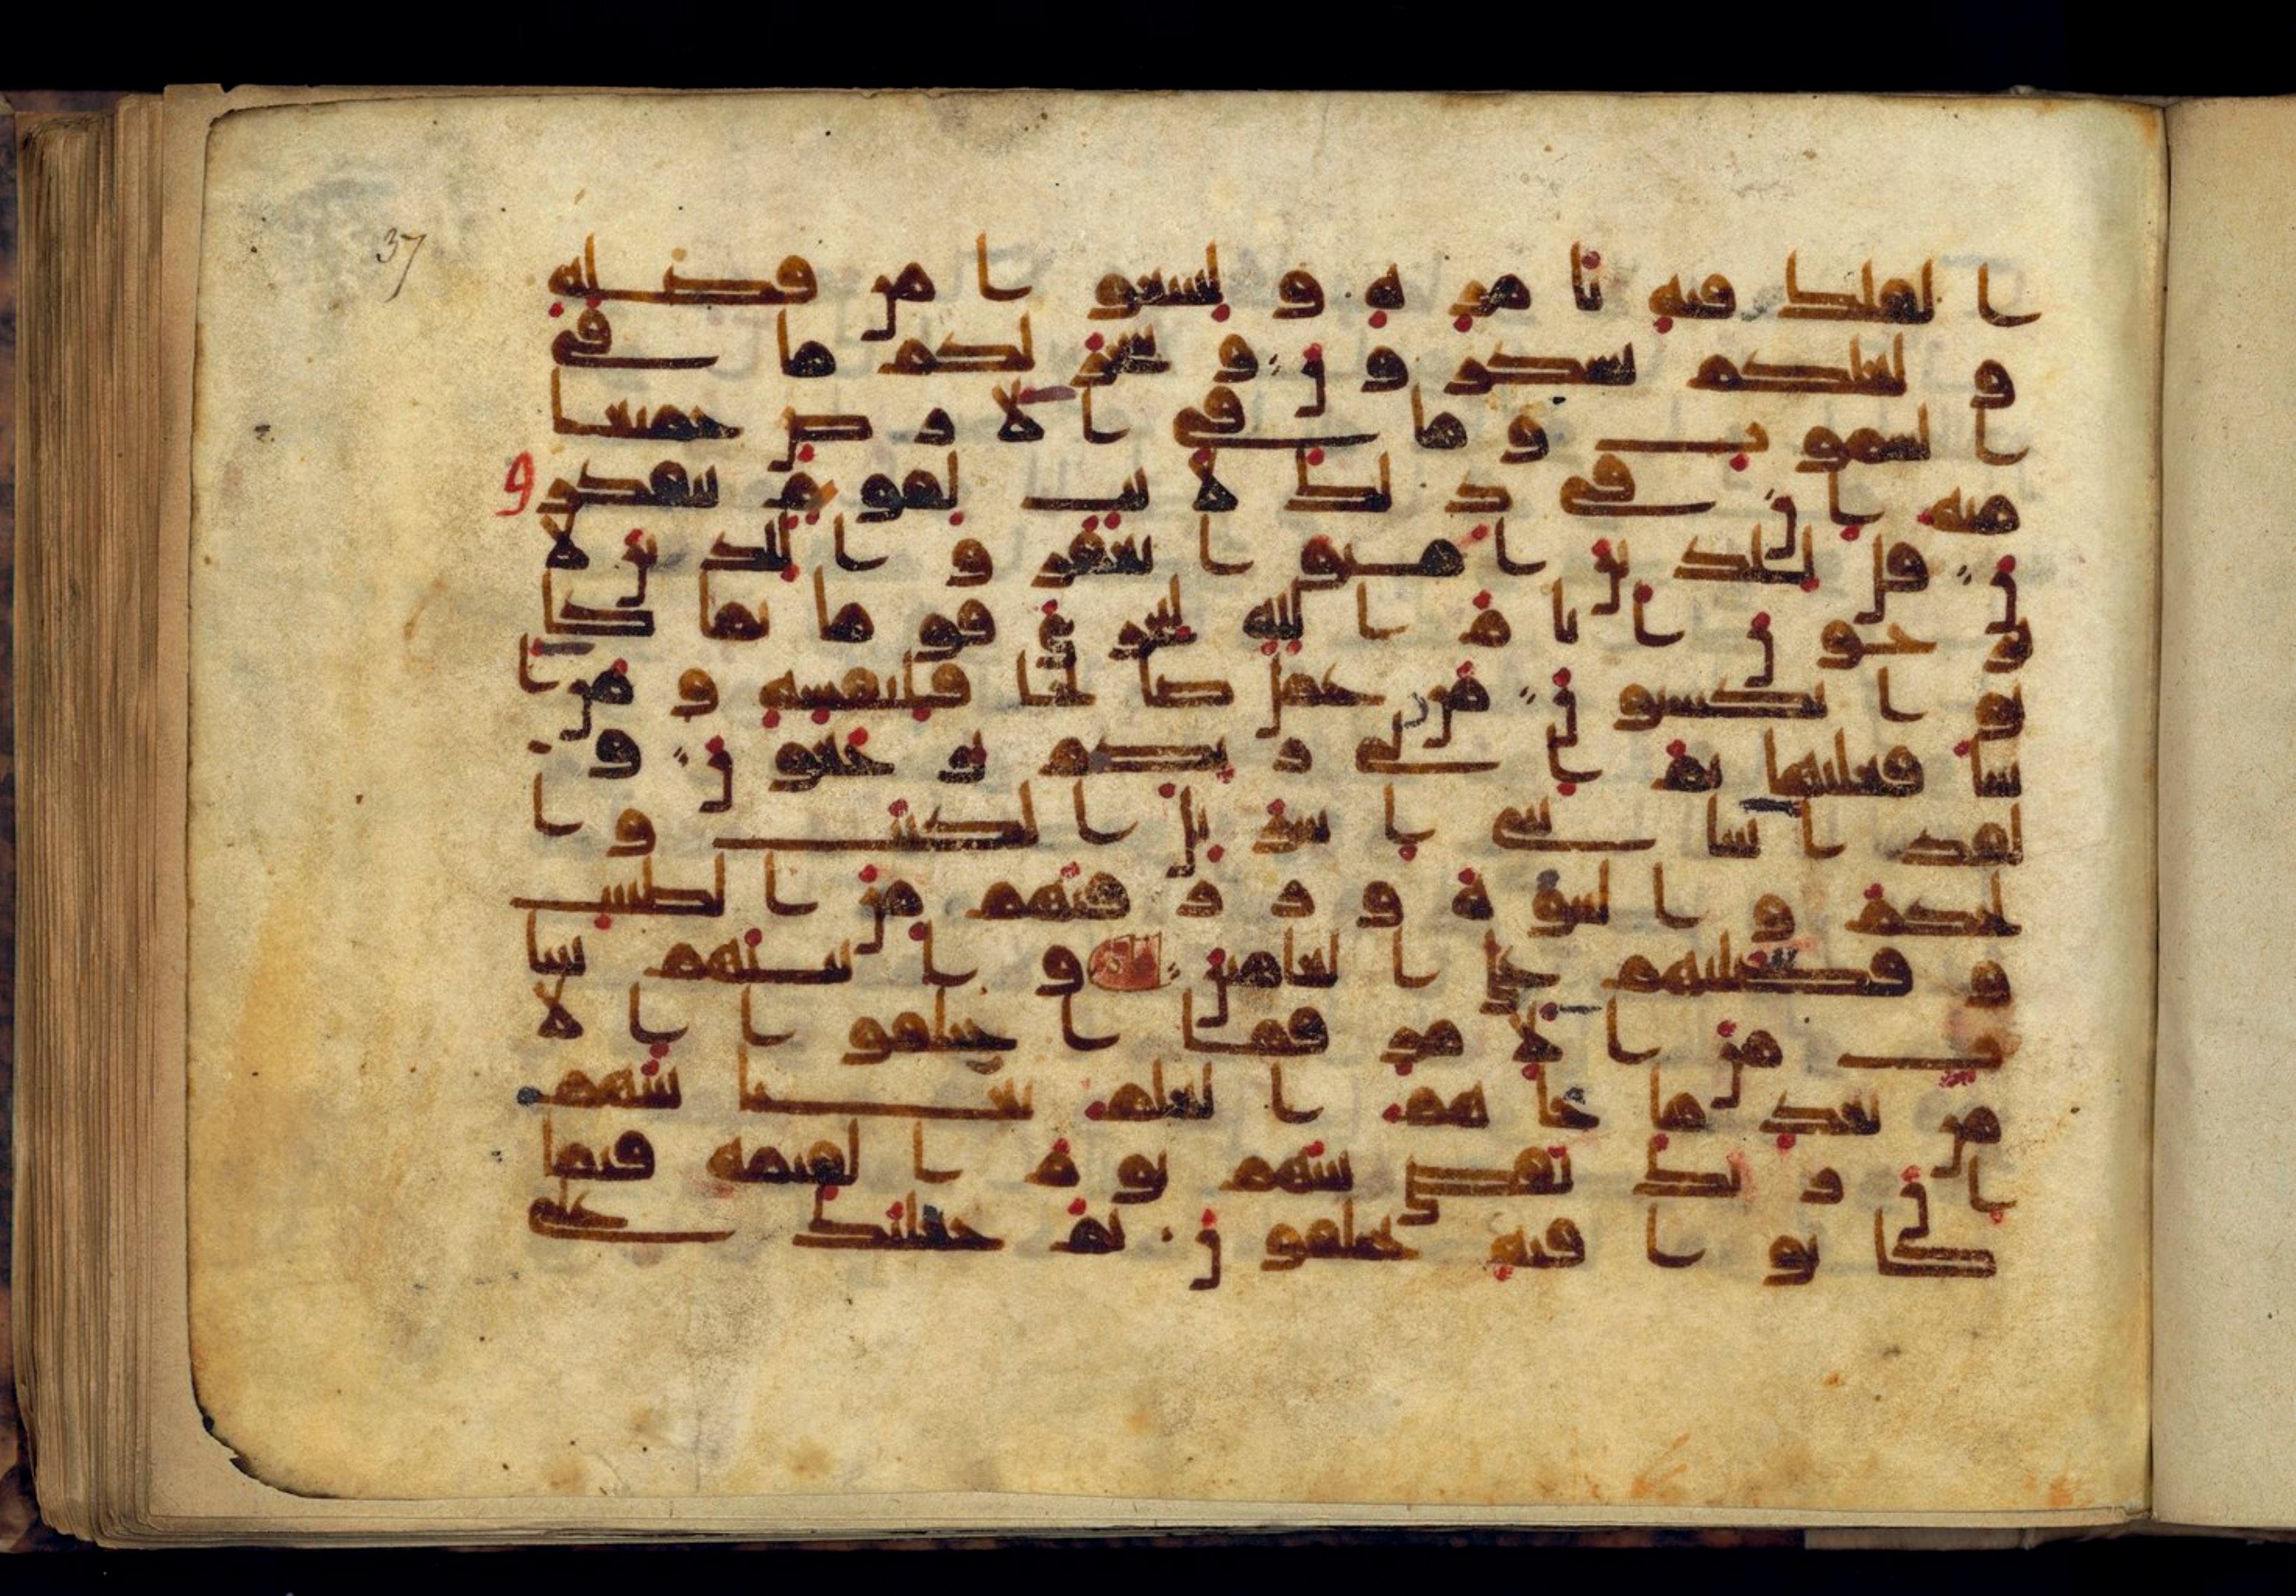 ا لفلك فيه بامره و لتبتغو ا من فضله
و لعلكم تشكرون و سخر لكم ما في
السموت و ما في الارض جميعا
منه ان في ذلك لايت لقوم يتفكرو
ن قل للذين امنوا يغفروا للذين لا
يرجون ايام الله ليجزي قوما بما كا
نوا يكسبون من عمل صلحا فلنفسه و من ا
سا فعليها ثم الى ربكم ترجعون و
لقد اتينا بني اسريل الكتب و ا
لحكم و النبوة و رزقنهم من الطيبت
و فضلنهم على العلمين و اتينهم بينا
ت من الامر فما اختلفوا الا
من بعد ما جاهم العلم بغيا بينهم
ان ربك يقضي بينهم يوم القيمه فيما
كانوا فيه يختلفون ثم جعلنك على
37